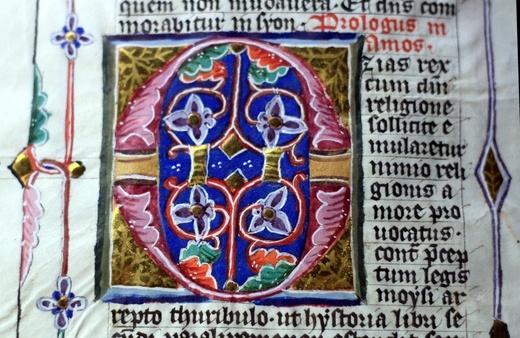 quem non mudauera. Et dns com
morabitur in syon. Prologus in
Amos.
Ozias rex
cum dm
religione
sollicite e
mularetur
nimio reli
gionis a
more pro
uocatus.
cont' pcep
tum legis
moysi ar
repto thuribulo. ut hystoria libri se